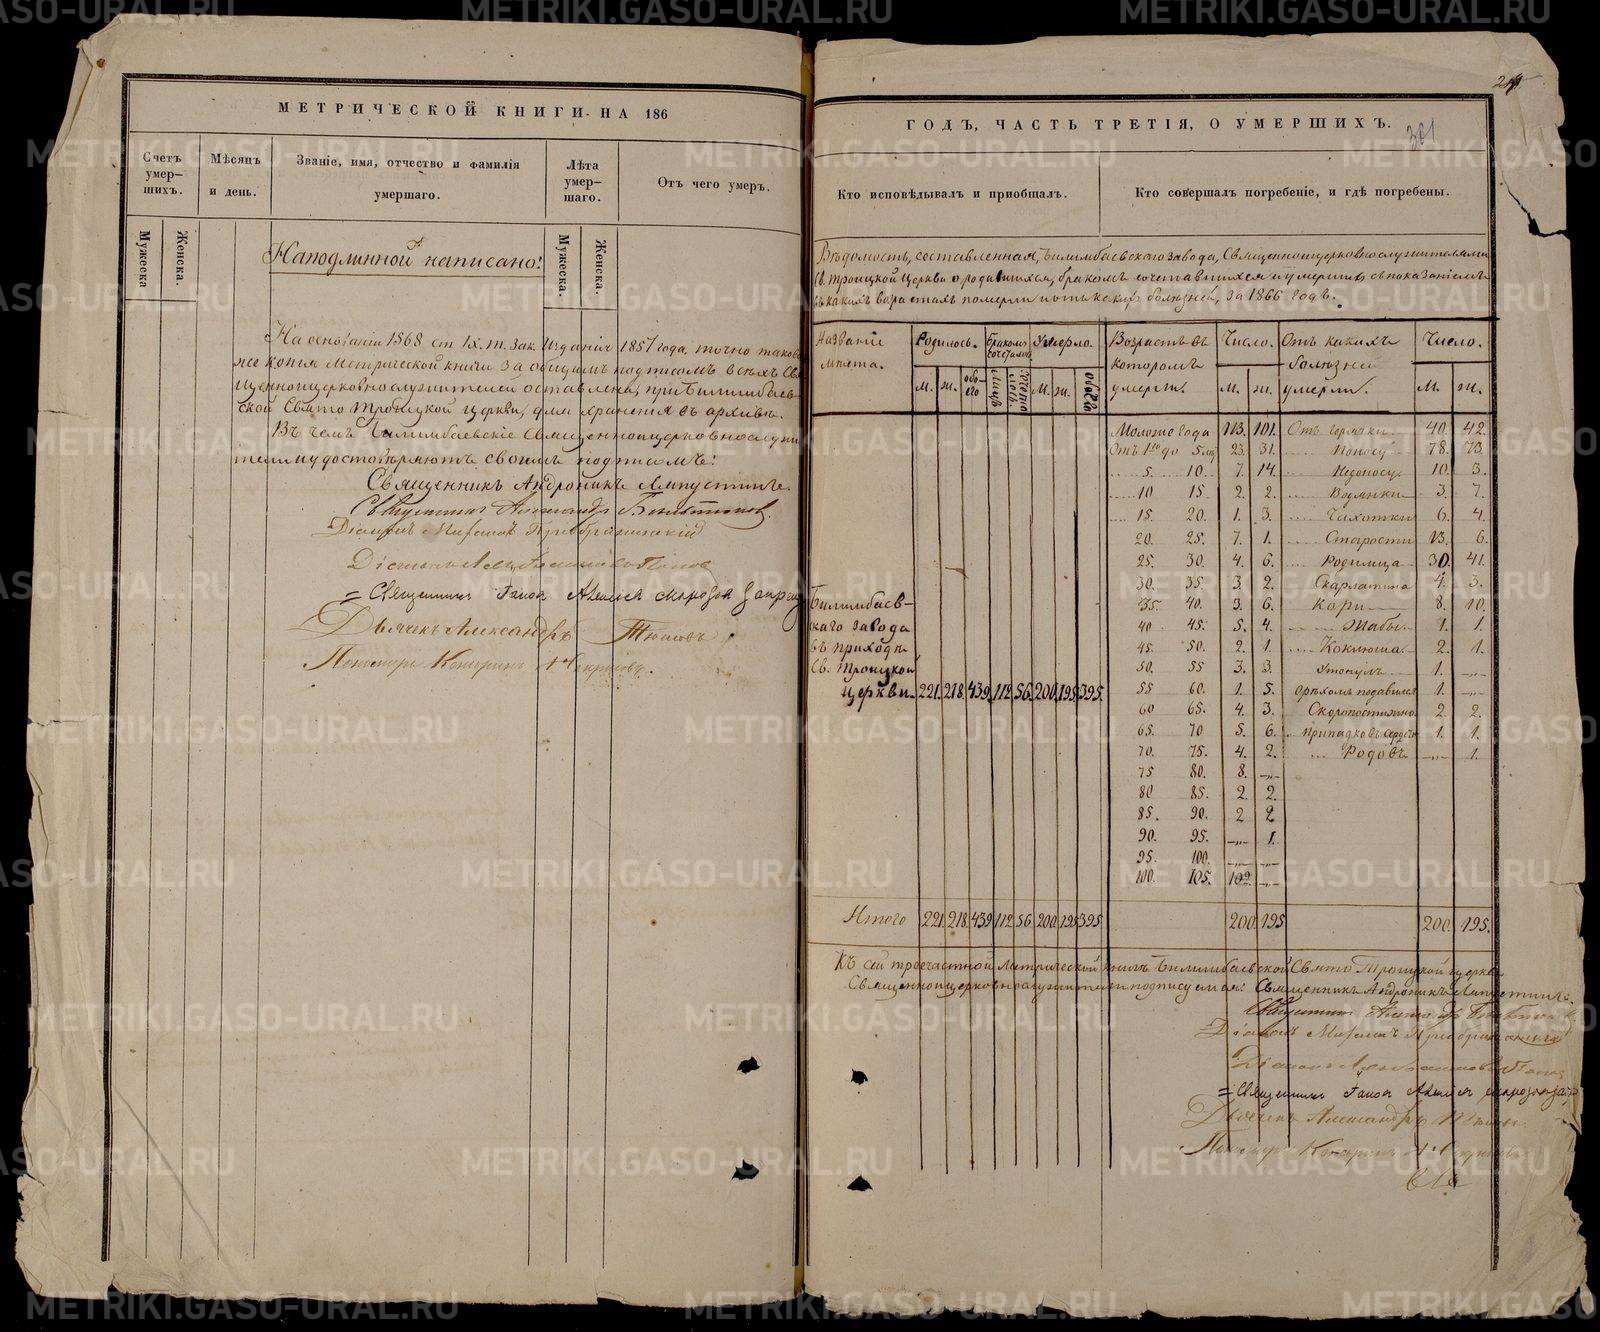 МЕТРИЧЕСКОЙ КНИГИ НА 186
Счетъ умер-шихъ.
Мѣсяцъ и день.
Званіе, имя, отчество и фамилія умершаго.
Лѣта умер-шаго.
Отъ чего умеръ.
Мужеска.
Женска.
Мужеска.
Женска.
Наподлинной написано:
На основаніи 1568 ст. IX. т. Зак. Изданія 1857 года, точно такова
же копія Метрической книги за общимъ подписомъ всѣхъ Свя
щенноцерковнослужителей оставлена, при Билимбаев-
ской Свято Троицкой церкви, для храненія въ архивѣ.
Въ чемъ Билимбаевскіе Священноцерковнослужи
тели и удостовѣряютъ своимъ подписомъ:
Священникъ Андроникъ Лапустинъ
Священникъ Александръ
Діаконъ
Діаконъ Попов
= Священникъ Алексѣй
Дьячекъ Александръ
Пономарь
ГОДЪ, ЧАСТЬ ТРЕТІЯ, О УМЕРШИХЪ.
301
Кто исповѣдывалъ и пріобщалъ.
Кто совершалъ погребеніе, и гдѣ погребены.
Вѣдомость, составленная, Билимбаевскаго завода, Священноцерковнослужителями
Св. Троицкой Церкви о родившихся, бракомъ сочетавшихся и умершихъ, съ показаніемъ
въ какихъ возрастахъ померли и отъ какихъ болѣзней, за 1866 годъ.
Названіе мѣста.
Родилось.
Бракомъ сочетались
Умерло.
Возрастъ въ которомъ умерли.
Число.
Отъ какихъ болѣзней умерли.
Число.
М. Ж. обо-его
М. Ж. обоего
М. Ж.
М. Ж.
Моложе года 113. 101. Отъ горячки 40. 42.
Отъ 1го до 5 23. 31. Поносу 78. 73.
5. 10. 7. 14. Недоносу 10. 3.
10 15. 2. 2. Водянки 3. 7.
15. 20. 1. 3. Чахотки 6. 4.
20. 25. 7. 1. Старости 13. 6.
25. 30. 4. 6. Родимца 30. 41.
30. 35. 3. 2. Скарлатина 4. 3.
35. 40. 3. 6. Кори 8. 10.
40 45. 5. 4. Жабы 1. 1.
45. 50. 2. 1. Коклюша 2. 1.
50. 55 3. 3. Утонулъ 1. -„-
55 60. 1. 5. Орѣхомъ подавился 1. -„-
60 65. 4. 3. Скоропостижно 2. 2.
65. 70 5. 6. Припадковъ 1. 1.
70. 75. 4. 2. Родовъ -„- 1.
75 80. 8. -„-
80 85. 2. 2.
85. 90. 2 2
90. 95. -„- 1.
95. 100. -„- -„-
100. 105. -„-
Билимбаев-
скаго завода
въ приходѣ
Св. Троицкой
Церкви. 221. 218. 439. 112. 56. 200. 195. 395.
Итого 221. 218. 439. 112. 56. 200. 195. 395. 200. 195 200. 195.
Къ сей троечастной Метрической книгѣ Билимбаевской Свято Троицкой церкви
Священноцерковнослужители подписуемся: Священникъ Андроникъ Лапустинъ
Священникъ
Діаконъ
Діаконъ
= Священникъ
Дьячекъ Александръ
Пономарь
METRIKI.GASO-URAL.RU